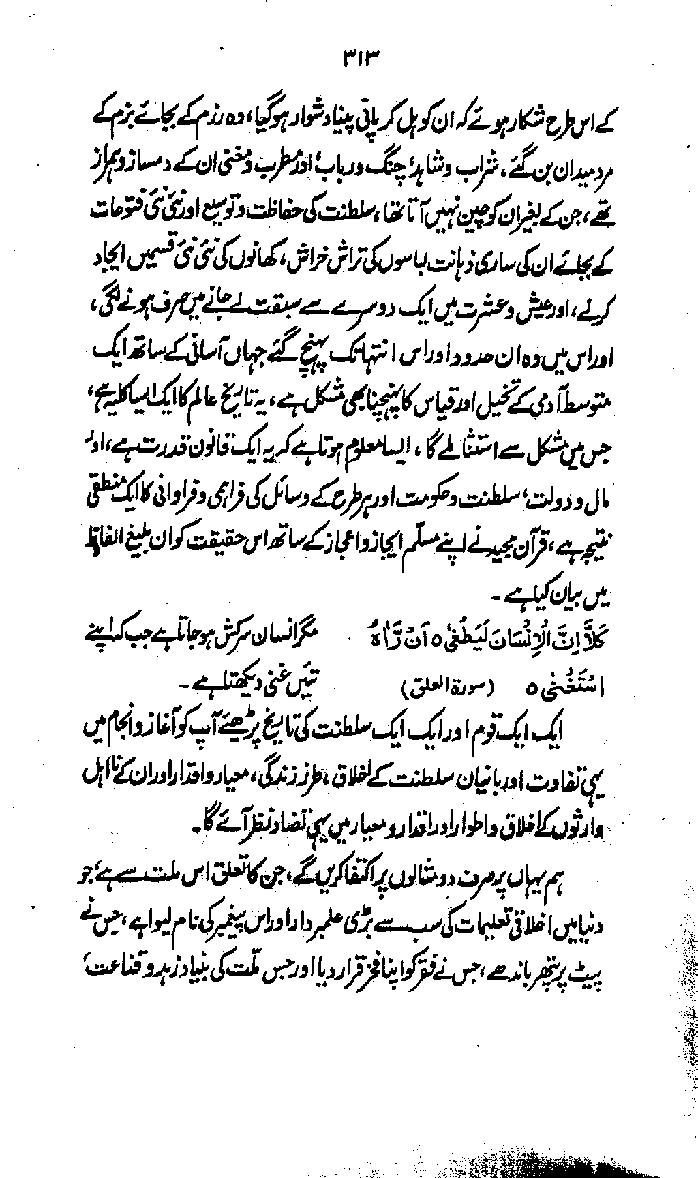 ۳۱۳
کے اس طرح شکار ہوئے کہ ان کو ہل کر پانی پینا دشوار ہوگیا، وہ رزم کے بجائے بزم کے
مرد میدان بن گئے، شراب و شاہد، چنگ و رباب اور مطرب و مغنی ان کے دمساز و ہمراز
تھے، جن کے بغیر ان کو چین نہیں آتا تھا، سلطنت کی حفاظت و توسیع اور نئی نئی فتوحات
کے بجائے ان کی ساری ذہانت لباسوں کی تراش خراش، کھانوں کی نئی نئی قسمیں ایجاد
کرنے، اور عیش و عشرت میں ایک دوسرے سے سبقت لے جانے میں صرف ہونے لگی،
اور اس میں وہ ان حدود اور اس انتہا تک پہنچ گئے جہاں آسانی کے ساتھ ایک
متوسط آدمی کے تخیل اور قیاس کا پہنچنا بھی مشکل ہے، یہ تاریخ عالم کا ایک ایسا کلیہ ہے،
جس میں مشکل سے استثنا ملے گا، ایسا معلوم ہوتا ہے کہ یہ ایک قانون قدرت ہے، اور
مال و دولت، سلطنت و حکومت اور ہر طرح کے وسائل کی فراہمی و فراوانی کا ایک منطقی
نتیجہ ہے، قرآن مجید نے اپنے مسلّم ایجاز و اعجاز کے ساتھ اس حقیقت کو ان بلیغ الفاظ
میں بیان کیا ہے۔
كَلَّا إِنَّ الْإِنْسَانَ لَيَطْغٰى ۝ اَنْ رَّاٰهُ مگر انسان سرکش ہو جاتا ہے جب کہ اپنے
اسْتَغْنٰى ۝ (سورة العلق) تئیں غنی دیکھتا ہے۔
ایک ایک قوم اور ایک ایک سلطنت کی تاریخ پڑھئے آپ کو آغاز و انجام میں
یہی تفاوت اور بانیان سلطنت کے اخلاق، طرز زندگی، معیار و اقدار اور ان کے نااہل
وارثوں کے اخلاق و اطوار اور اقدار و معیار میں یہی تضاد نظر آئے گا۔
ہم یہاں پر صرف دو مثالوں پر اکتفا کریں گے، جن کا تعلق اس ملت سے ہے، جو
دنیا میں اخلاقی تعلیمات کی سب سے بڑی علمبردار اور اس پیغمبر کی نام لیوا ہے، جس نے
پیٹ پر پتھر باندھے، جس نے فقر کو اپنا فخر قرار دیا اور جس ملّت کی بنیاد زہد و قناعت،